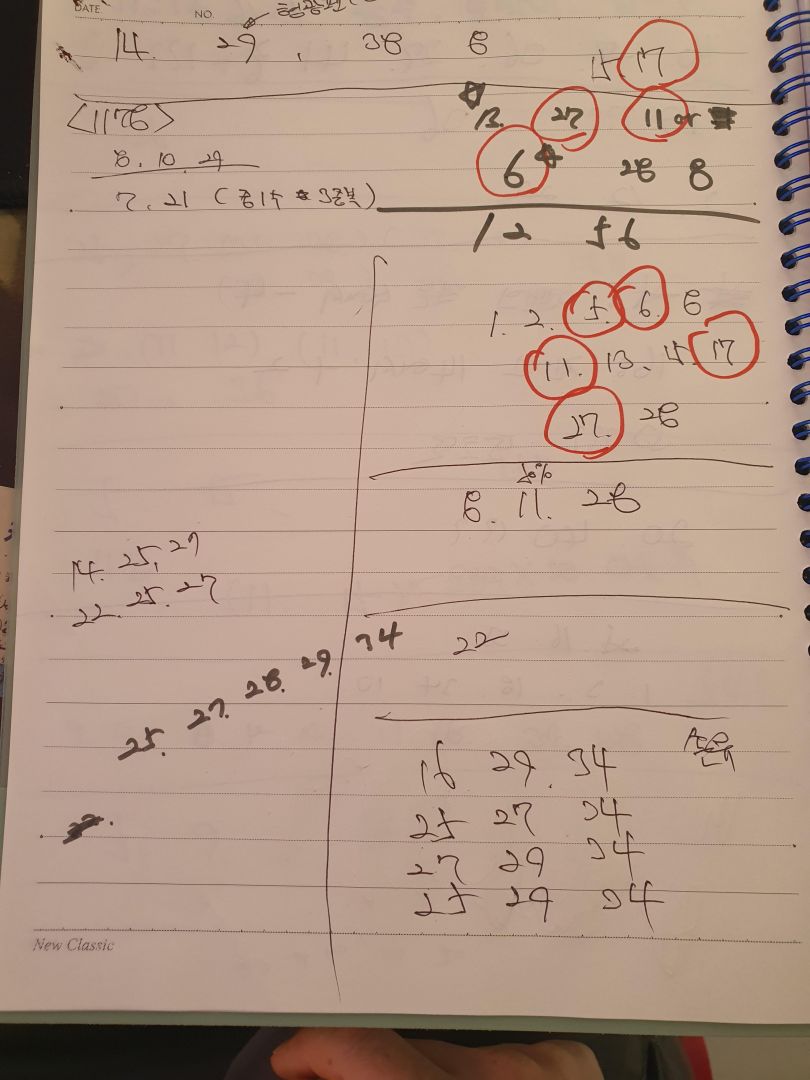 DATE
NO.
14. 29, 38 8
15. 17
<1176>
8. 10. 29
7. 21 ( 3
13. 27 11 or
6 28 8
12 56
1. 2. 5. 6. 8
11. 13. 15. 17
27. 28
%
8. 11. 28
14. 25, 27
22. 25. 27
25. 27. 28. 29. 34
22
16 29. 34
25 27 34
27 29 34
25 29 34
New Classic